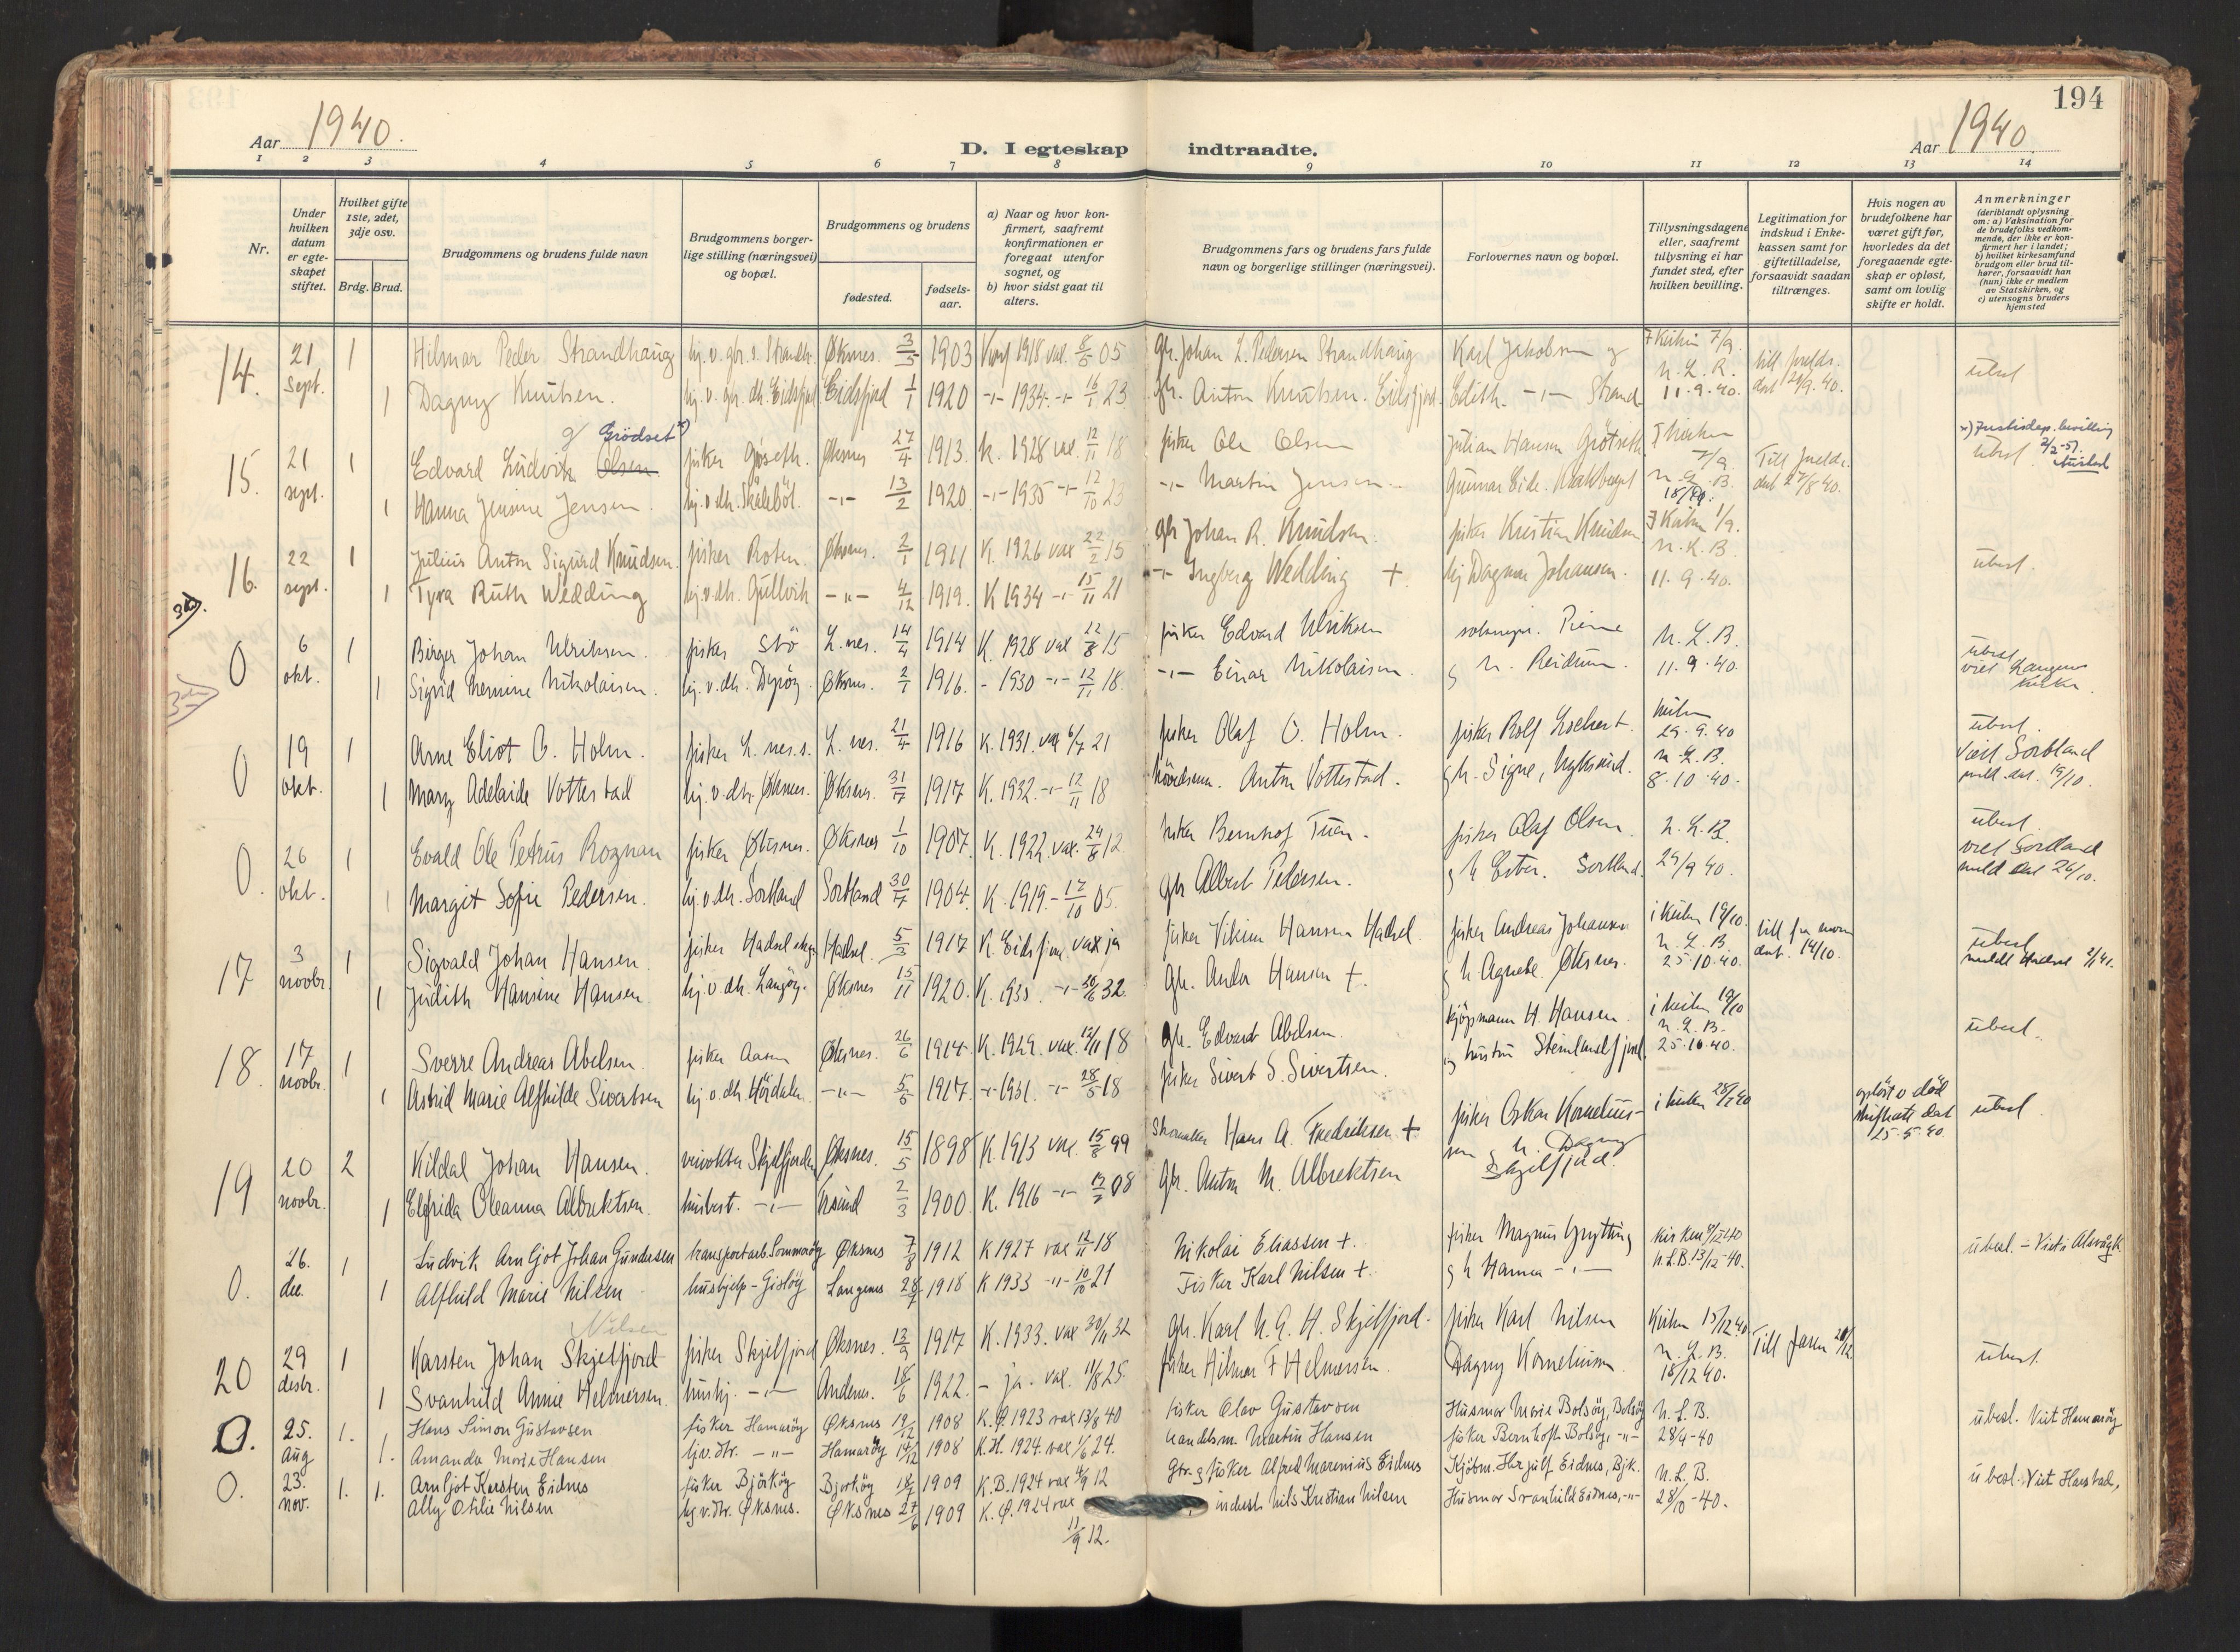 194
Aar 1940.
D. I egteskap indtraadte.
Aar 1940.
1 2 3 4 5 6 7 8 9 10 11 12 13 14
Nr.
Under hvilken datum er egteskapet stiftet.
Hvilket gifte 1ste, 2det, 3dje osv.
Brdg. Brud.
Brudgommens og brudens fulde navn
Brudgommens borgerlige stilling (næringsvei) og bopæl.
Brudgommens og brudens
fødested.
fødselsaar.
a) Naar og hvor konfirmert, saafremt konfirmationen er foregaat utenfor sognet, og
b) hvor sidst gaat til alters.
Brudgommens fars og brudens fars fulde navn og borgerlige stillinger (næringsvei).
Forlovernes navn og bopæl.
Tillysningsdagene eller, saafremt tillysning ei har fundet sted, efter hvilken bevilling.
Legitimation for indskud i Enkekassen samt for giftetilladelse, forsaavidt saadan tiltrænges.
Hvis nogen av brudefolkene har været gift før, hvorledes da det foregaaende egteskap er opløst, samt om lovlig skifte er holdt.
Anmerkninger (deriblandt oplysning om: a) Vaksination for de brudefolks vedkommende, der ikke er konfirmert her i landet; b) hvilket kirkesamfund brudgom eller brud tilhører, forsaavidt han (hun) ikke er medlem av Statskirken, og c) utensogns bruders hjemsted
14. 21 Sept. 1 Hilmar Peder Strandhaug Øksnes. 3/5 1903 1918 vax. 8/6 05 gbr. Johan L. Pedersen Strandhaug Karl Jakobsen og 7/9. N.L.B. 11.9.40. ubesl
1 Dagny Knutsen. Eidsfjord 1/1 1920 -"- 1934 -"- 16/1 23 gbr. Anton Knutsen. Eidsfjord. Edith -"- Strand
15. 21 sept. 1 Edvard Ludvik Olsen Grödset x) fisker Øksnes 27/4 1913. K. 1928 vax. 12/11 18 fisker Ole Olsen Julian Hansen x) Justisdep. bevilling 2/2-51.
1 Hanna Jensine Jensen -"- 13/2 1920 -"- 1935 -"- 12/10 23 -"- Martin Jensen Gunnar Eide.
16. 22 sept. 1 Julius Anton Sigurd Knudsen. fisker Roten Øksnes. 2/1 1911 K. 1926 vax 22/2 15 gbr Johan R. Knudsen. fisker Kristian Knudsen 1/9. 11.9.40. ubesl.
1 Tyra Ruth Wedding hj.v.dtr. Gullvik -"- 4/12 1919. K 1934 -"- 15/11 21 -"- Ingberg Wedding + hj Dagmar Johansen.
0 6 okt. 1 Birger Johan Ulriksen. fisker Stö L.nes. 14/4 1914 K. 1928 vax 12/8 15 fisker Edvard Ulriksen N.L.B. 11.9.40. ubesl viet Langenes kirke
1 Sigrid Hermine Nikolaisen. hj.v.dtr. Dyröy Øksnes. 2/1 1916. - 1930 -"- 12/11 18. -"- Einar Nikolaisen. g h. Reidun.
0 19 okt. 1 Arne Eliot O. Holm. fisker L.nes.s. L.nes. 21/4 1916 K. 1931. vax 6/7 21 fisker Olaf O. Holm. fisker Rolf 29.9.40 N.L.B. 8.10.40. ubesl. viet Sortland meld. dat. 19/10.
1 Mary Adelaide Vottestad hj.v.dtr. Øksnes. Øksnes. 31/7 1917 K. 1932. -"- 12/11 18 Anton Vottestad. g h. Signe, Nyksund.
0. 26 okt. 1 Evald Ole Petrus Roznan fisker Øksnes. Øksnes 1/10 1907. K. 1922. vax. 24/8 12 fisker Bernhof fisker Olaf Olsen. N.L.B. 29/9 40. ubesl. viet Sortland meld dat 26/10.
1 Margit Sofie Pedersen. hj.v.dtr. Sortland Sortland 30/7 1904. K. 1919. - 17/10 05. gbr Albert Pedersen. g h Ester. Sortland.
17 3 novbr. 1 Sigvald Johan Hansen. fisker Hadsel Hadsel. 5/3 1917 K. Eidsfjord vax ja fisker Hansen Hadsel fisker Andreas Johansen i kirken 19/10. N.L.B. 25.10.40. 14/10. ubesl meldt Hadsel 2/1 41.
1 Judith Hansine Hansen. hj.v.dtr. Langöy. Øksnes 15/11 1920. K. 1935. -"- 26/6 32. gbr. Andor Hansen +. g h. Agnete. Øksnes.
18. 17 novbr. 1 Sverre Andreas Abelsen. fisker Aasen Øksnes. 26/6 1914. K. 1929. vax. 12/11 18 gbr. Edvard Abelsen. kjöpmann H. Hansen. i kirken 19/10 N.L.B. 25.10.40. ubesl.
1 Astrid Marie Alfhilde Sivertsen hj.v.dtr. -"- 5/6 1917. -"- 1931. -"- 28/5 18 fisker Sivert S. Sivertsen. og hustru
19 20 novbr. 2 Kildal Johan Hansen. Skjelfjorden Øksnes. 15/5 1898 K. 1913 vax. 15/8 99 Hans A. Fredriksen + fisker Oskar Korneliussen g h. Dagny Skjelfjord. i kirken oplöst v död skifteatt. dat 25.5.40. ubesl.
1 Elfrida Oleanna Albrektsen. husbest. -"- 2/3 1900. K. 1916 -"- 08 gbr. Anton M. Albrektsen
0. 26. dec. 1 Ludvik Arnljot Johan Gundersen transportarb. Sommeröy Øksnes 7/8 1912 K 1927 vax 12/11 18 Nikolai Eliassen +. fisker Magnus Grytting kirken 8/12-40 N.L.B. 13/12-40. ubesl. - Viet i Alsvåg k.
1 Alfhild Marie Nilsen hushjelp - Gislöy Langenes 28/7 1918 K 1933 -"- 10/10 21 Fisker Karl Nilsen +. g h Hanna -"-
20 29 desbr. 1 Karsten Johan Skjelfjord Nilsen fisker Skjelfjord Øksnes. 12/9 1917 K. 1933. vax 30/11 32 gbr. Karl N.A.H. Skjelfjord. fisker Karl Nilsen Kirken 15/12.40 N.L.B. 18/12 40. ubesl.
1 Svanhild Annie Helmersen. hushj. -"- Andenes. 18/6 1922. - ja. vax. 11/8 25. fisker Hilmar F Helmersen. Dagny Korneliussen
0. 25. Aug 1. Hans Simon Gustavsen fisker Hamaröy Øksnes 19/12 1908 K.Ø. 1923 vax 13/8 40 fisker Olav Gustavsen Husmor Marie Bolsöy, Bolsöy N.L.B. 28/4-40 ubesl. Viet Hamaröy
1. Amanda Marie Hansen hj.v.dtr. -"- Hamaröy 14/12 1908 K.H. 1924. vax 1/6 24. handelsm. Martin Hansen fisker Bernhoft Bolsöy, -"-
0. 23. nov. 1. 1. Arnljot Karsten Eidnes fisker Bjarköy Bjarköy 18/7 1909 K.B. 1924 vax 4/9 12 Gbr. g fisker Alfred Marenius Eidnes Kjöbm. Herjulf Eidnes, Bjk. N.L.B. 28/10-40. ubesl. Viet Harstad,
Ally Otilie Nilsen hj.v.dtr. Øksnes. Øksnes 27/6 1909 K.Ø. 1924 vax 11/9 12. Nils Kristian Nilsen Husmor Svanhild Eidnes, -"-